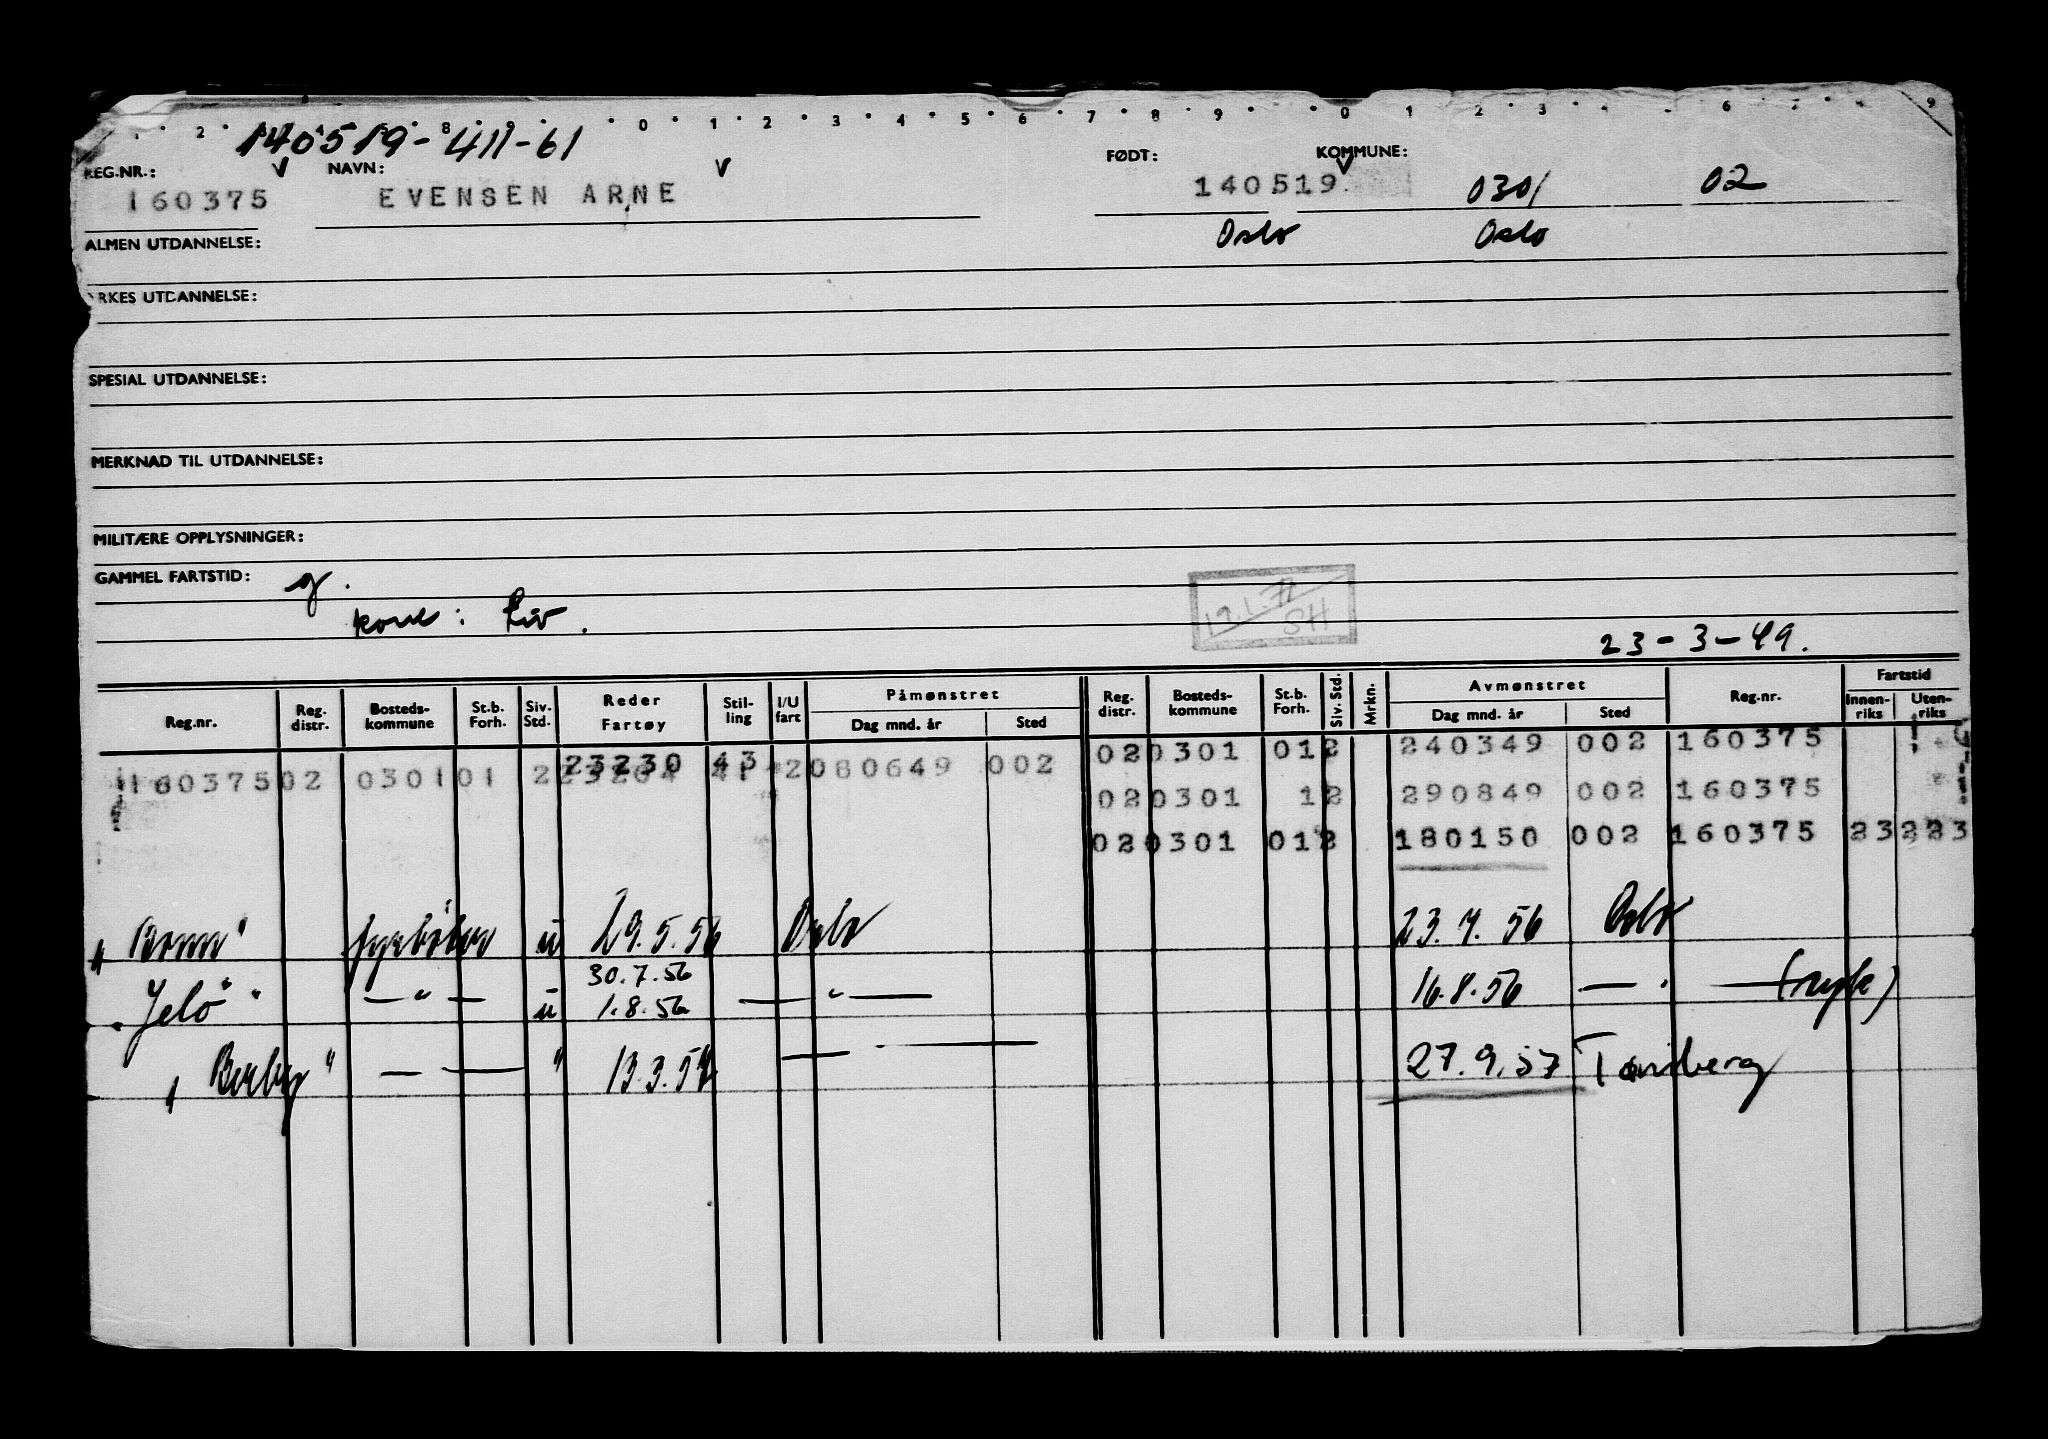 140519-411-61
REG.NR.: NAVN: FØDT: KOMMUNE:
160375 EVENSEN ARNE 140519 0301 02
Oslo Oslo
ALMEN UTDANNELSE:
YRKES UTDANNELSE:
SPESIAL UTDANNELSE:
MERKNAD TIL UTDANNELSE:
MILITÆRE OPPLYSNINGER:
GAMMEL FARTSTID:
kone: Liv.
23-3-49.
Reg.nr. Reg. distr. Bosteds-kommune St.b. Forh. Siv. Std. Reder Fartøy Stil-ling I/U fart Påmønstret Dag mnd. år Sted Reg. distr. Bosteds-kommune St.b. Forh. Siv. Std. Mrkn. Avmønstret Dag mnd. år Sted Reg.nr. Fartstid Innen-riks Uten-riks
23230 43 020301 012 240349 002 160375
16037502 030101 2 2 080649 002
020301 12 290849 002 160375
020301 012 180150 002 160375 23 223
" u 29.5.56 Oslo 23.7.56 Oslo
30.7.56
"Jelö" — " — u 1.8.56 — " — 16.8.56 — " —
"Borby" — — " 13.3.57 — — 27.9.57 Tønsberg